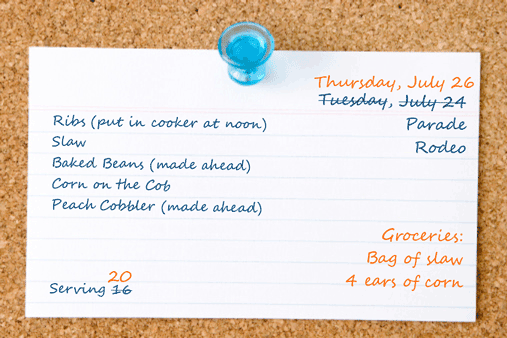 Thursday, July 26
Tuesday, July 24
Parade
Rodeo
Ribs (put in cooker at noon)
Slaw
Baked Beans (made ahead)
Corn on the Cob
Peach Cobbler (made ahead)
Groceries:
Bag of slaw
4 ears of corn
20
Serving 16